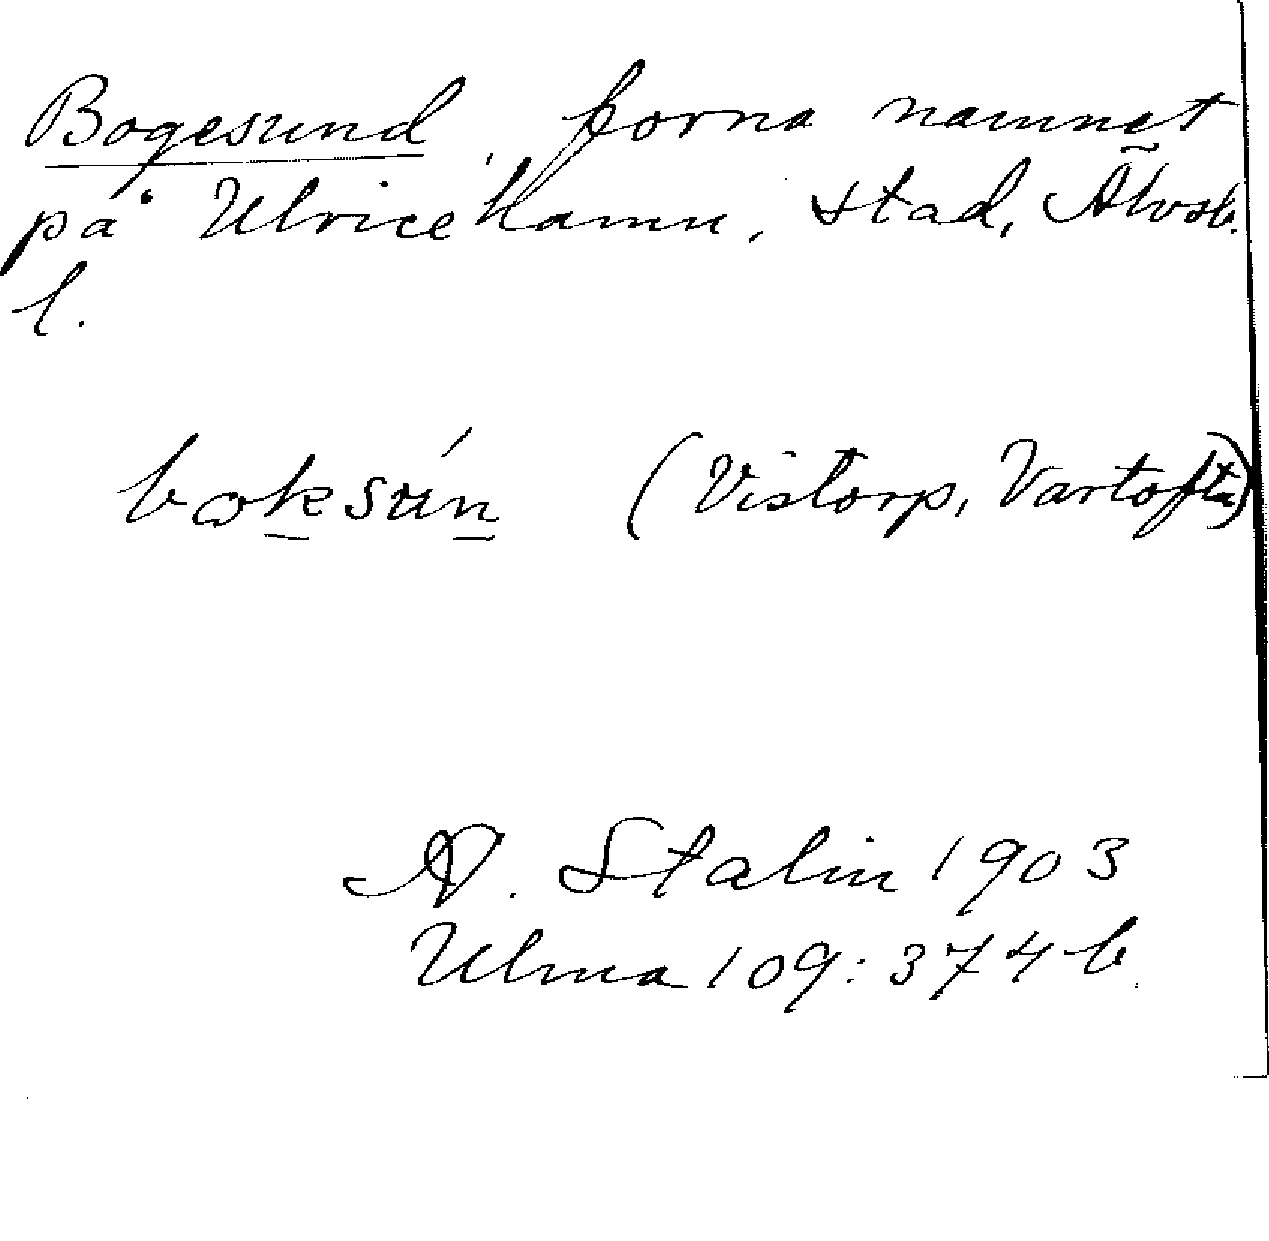 Bogesund, forna namnet
på Ulricehamn, stad, Älvsb.
l.
boksún (Vistorp, Vartofta)
A. Stalin 1903
Ulma 109:374 b.